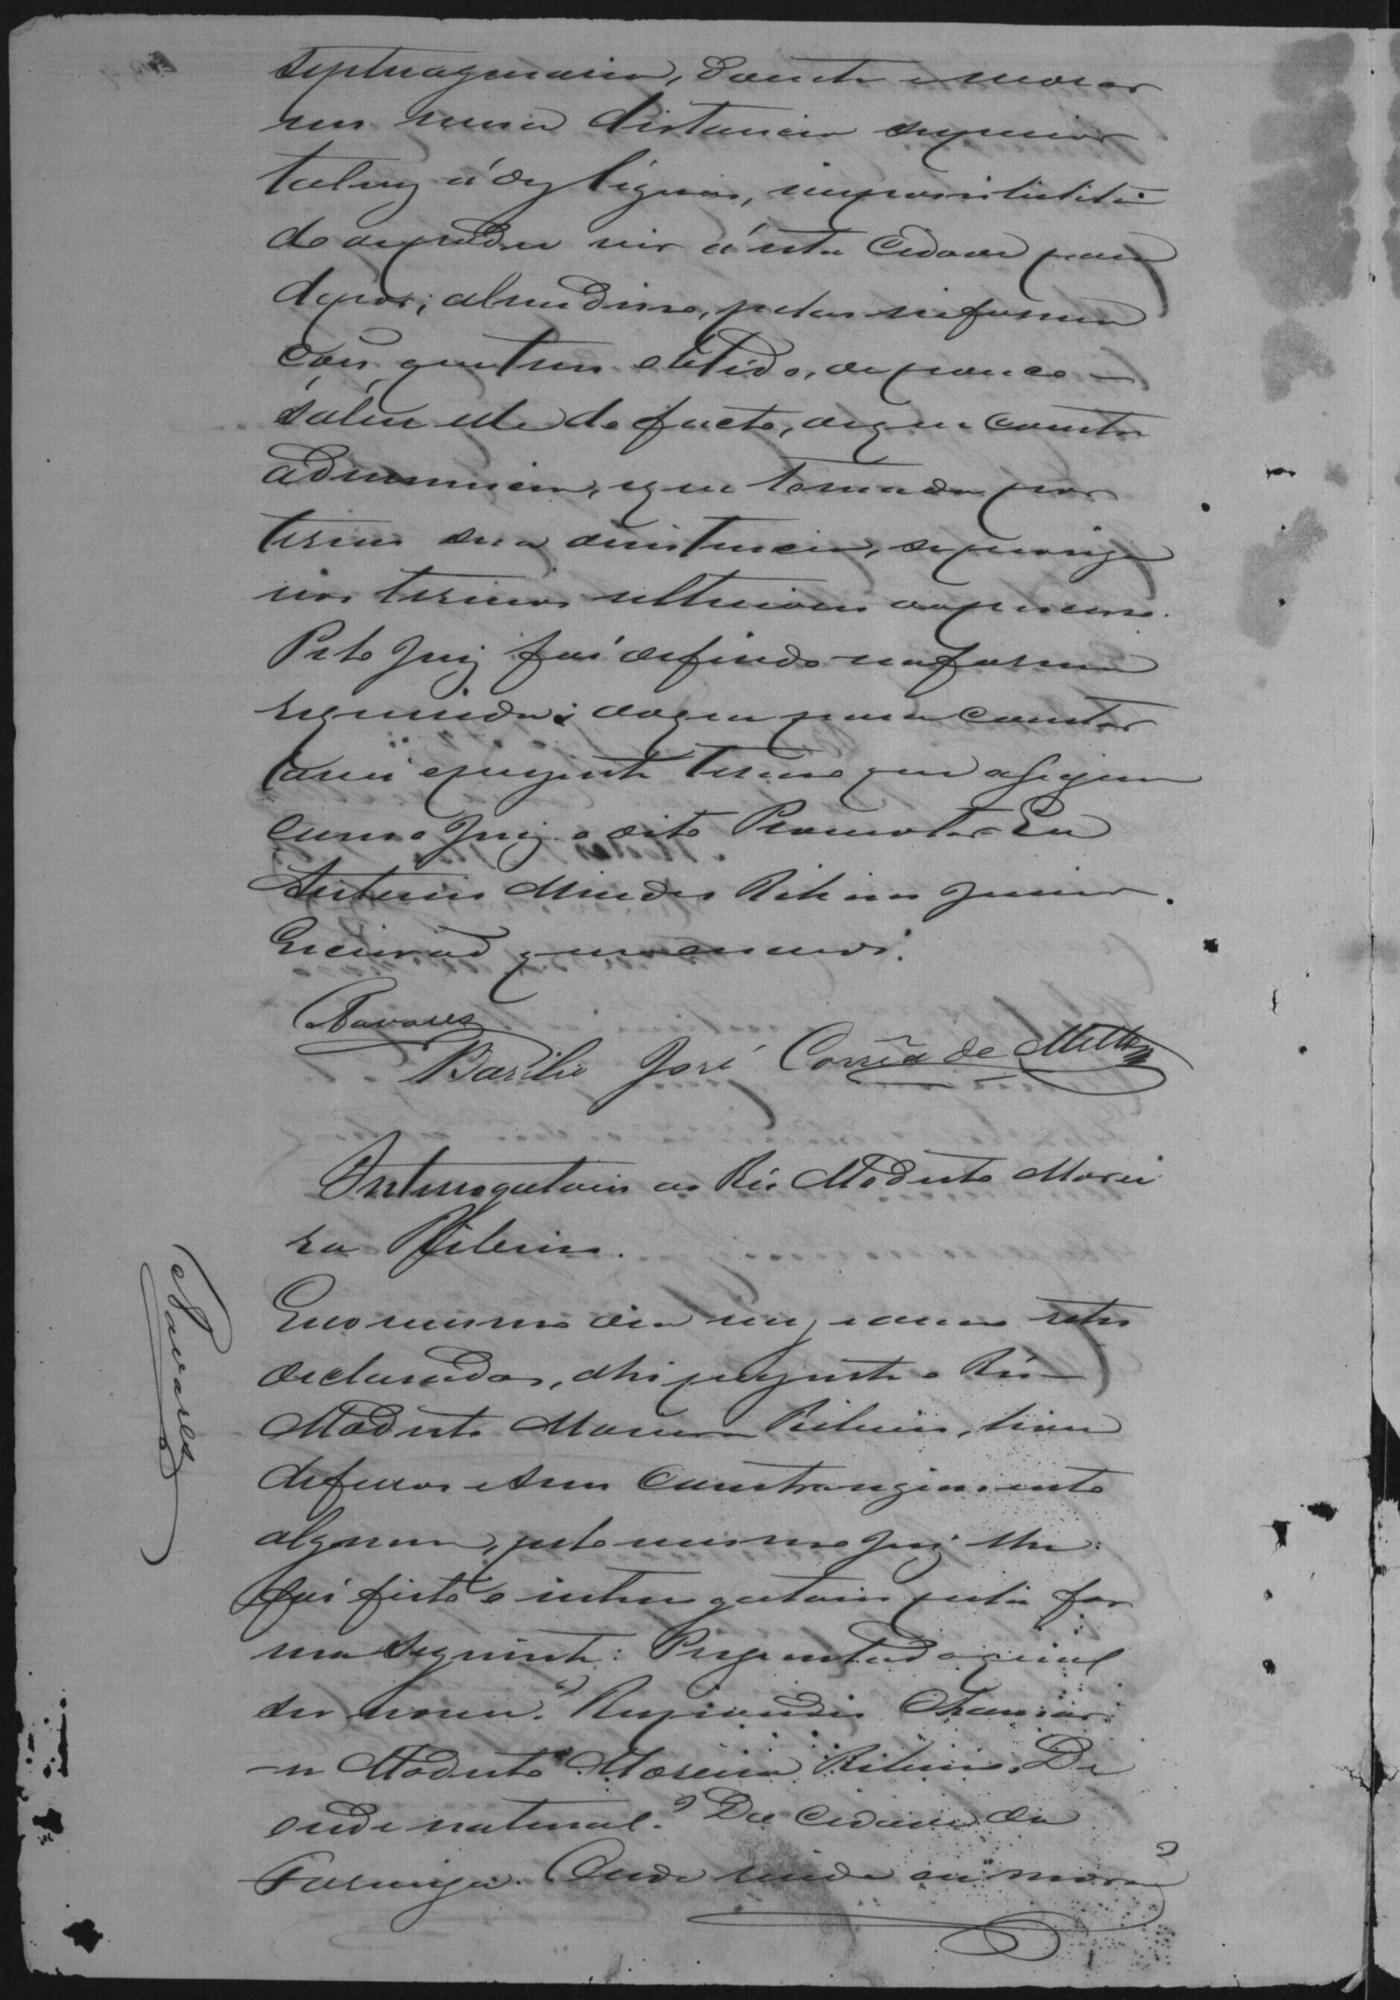 septuagenario, doente e morar
em uma distancia superior
talvez a dez legoas, impossibilita
do de poder vir a esta Cidade para
depor; alem disso, pelas informa
ções que tem obtido, de pouco
sabia elle do facto, de que consta
a denuncia, e que tomada por
termo sua desistencia, se prosiga
nos termos ulteriores do processo.
Pelo Juiz foi deferido na forma
requerida; do que para constar
lavrei o presente termo que assigna
com o Juiz o dito Promotor. Eu
Antonio Mendes Ribeiro Junior.
Escrivão que o escrevi.
Tavares
Basilio José Corrêa de Mello
Interrogatorio ao Réo Modesto Morei
ra Ribeiro.
E no mesmo dia mez e anno retro
declarados, ahi presente o Réo
Modesto Moreira Ribeiro, livre
de ferros e sem constrangimento
algum, pelo mesmo Juiz lhe
foi feito o interrogatorio pela for
ma seguinte: Perguntado qual
seu nome? Respondeu chamar-
se Modesto Moreira Ribeiro. De
onde natural? Da cidade da
Formiga. Onde reside ou mora?
Tavares